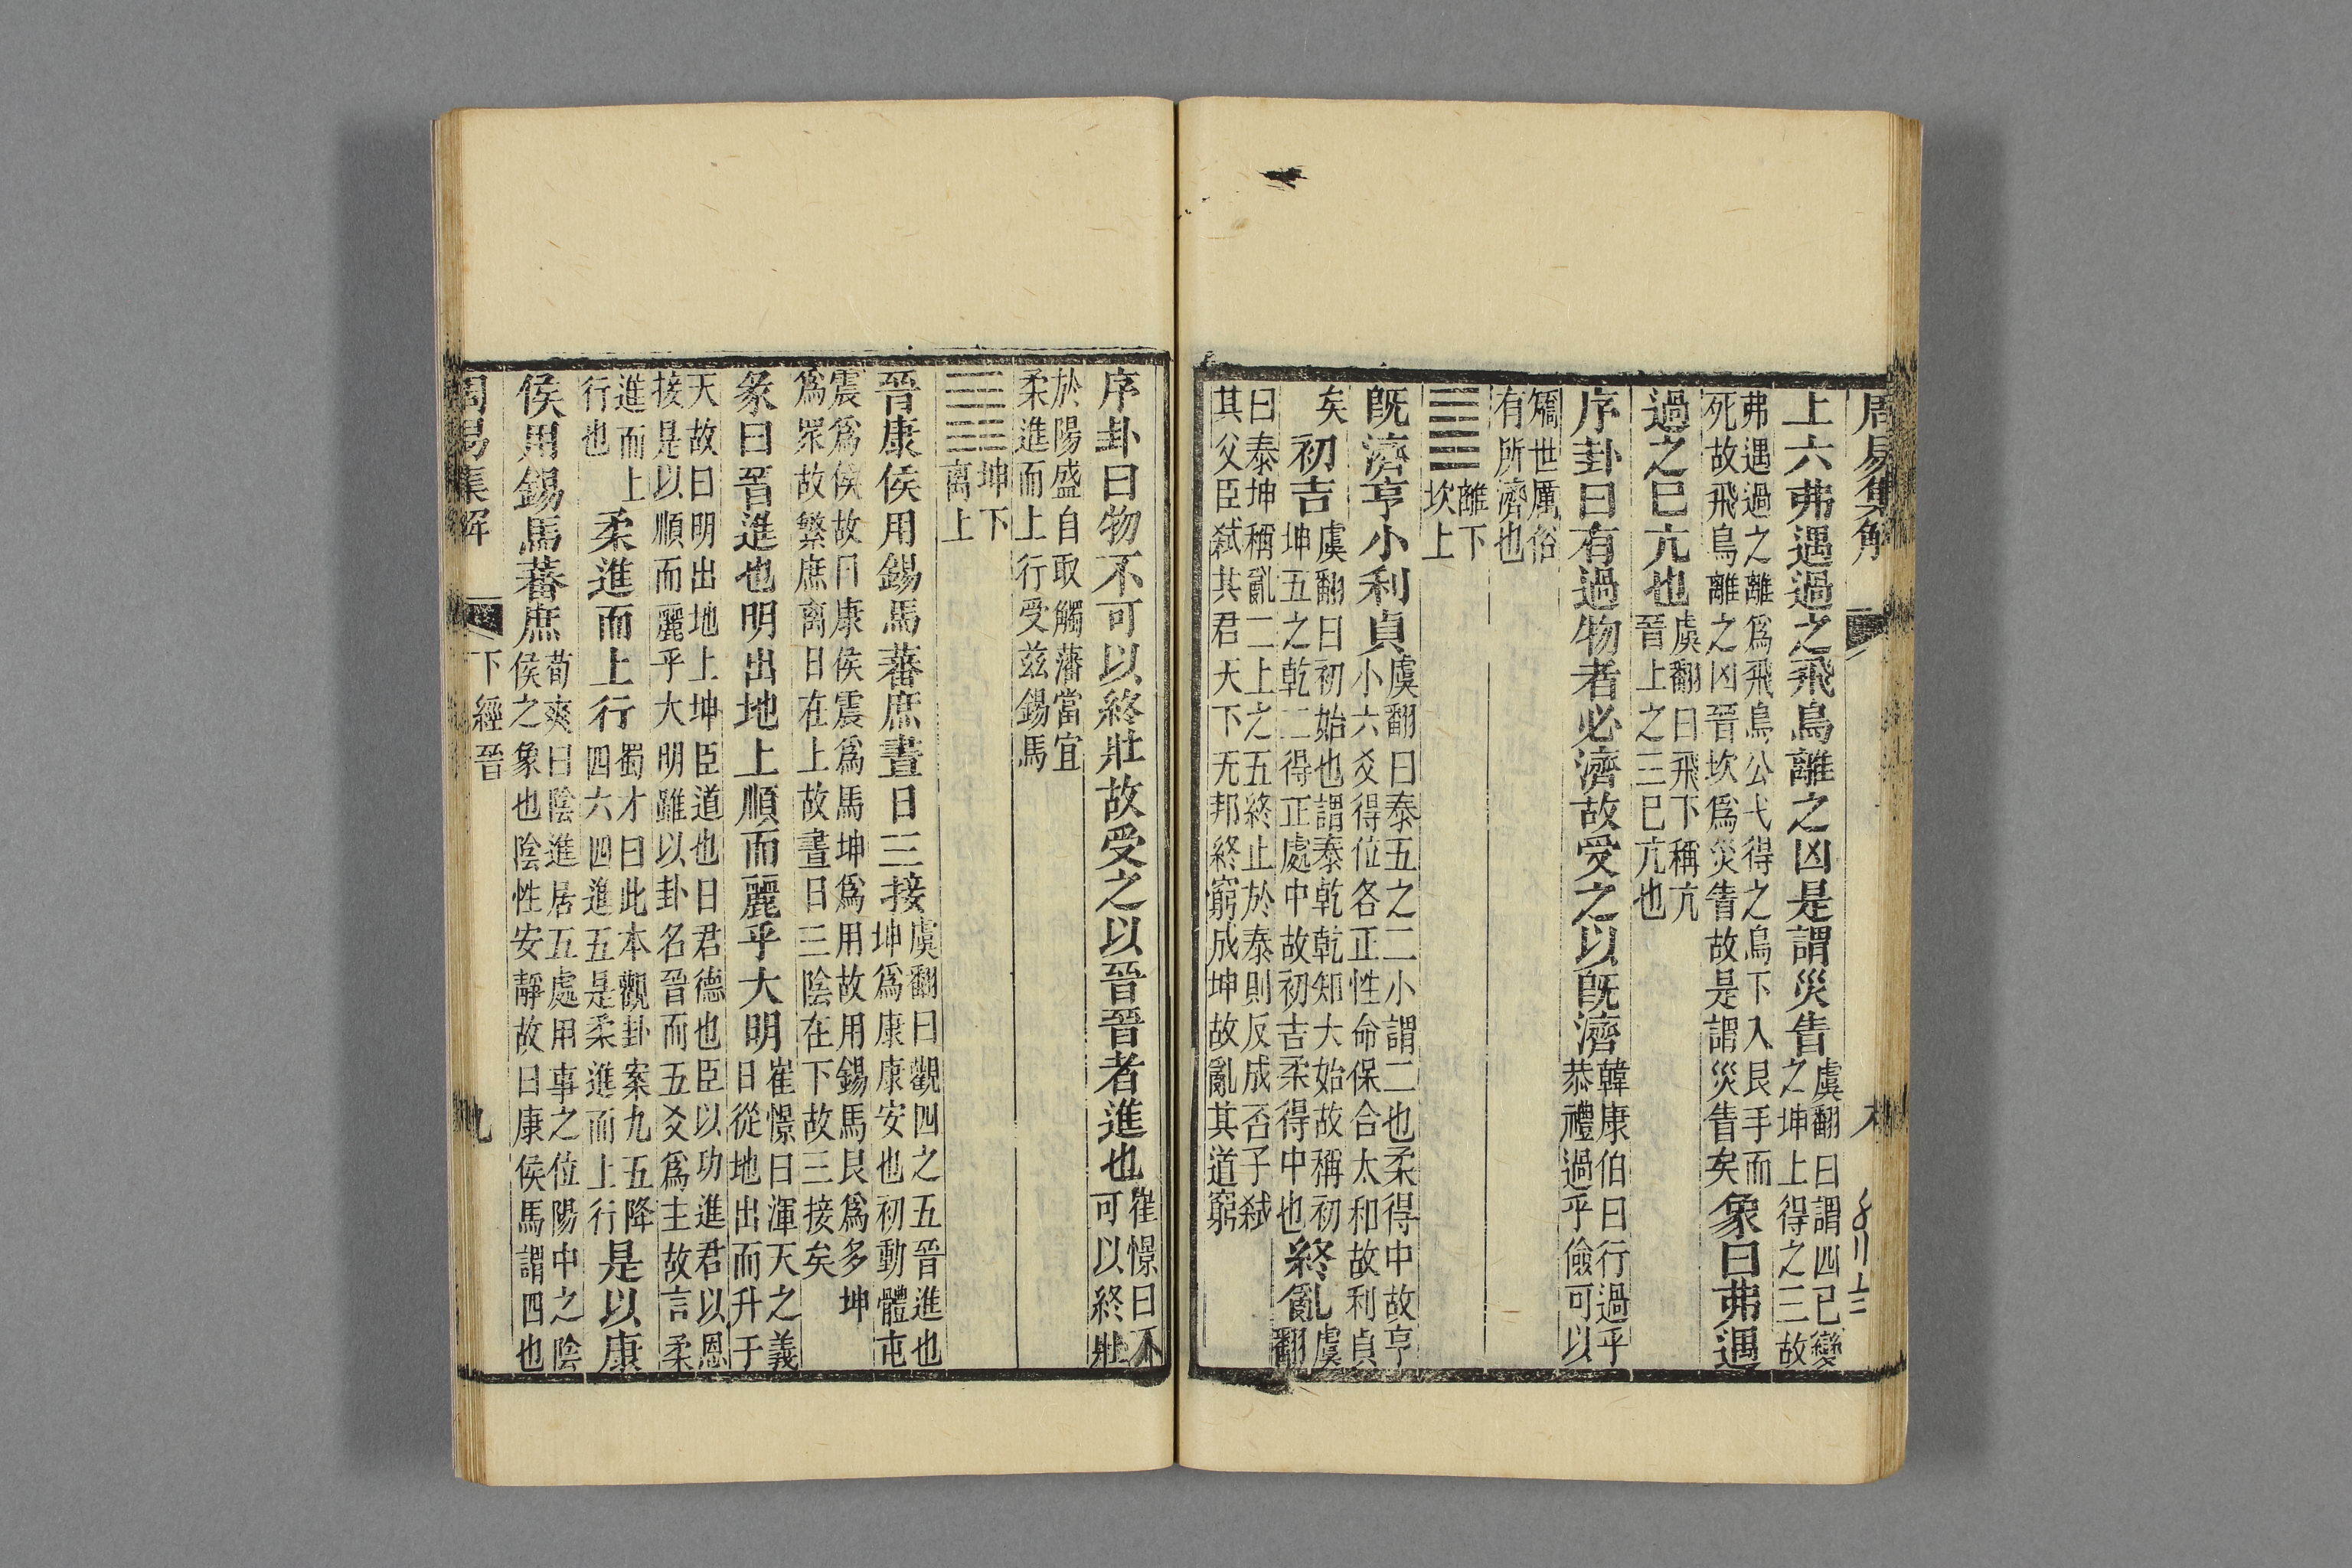 周易集解
上六弗遇過之飛鳥離之凶是謂災眚虞翻曰謂四已變之坤上得之三故
弗遇過之離爲飛鳥公弋得之鳥下入艮手而死故飛鳥離之凶晉坎爲災眚故是謂災眚矣象曰弗遇
過之已亢也虞翻曰飛下稱亢晉上之三已亢也
序卦曰有過物者必濟故受之以旣濟韓康伯曰行過乎恭禮過乎儉可以
矯世厲俗有所濟也
離下坎上
旣濟亨小利貞虞翻曰泰五之二小謂二也柔得中故亨小六爻得位各正性命保合太和故利貞
矣初吉虞翻曰初始也謂泰乾乾知大始故稱初坤五之乾二得正處中故初吉柔得中也終亂虞翻
曰泰坤稱亂二上之五終止於泰則反成否子弑其父臣弑其君天下无邦終窮成坤故亂其道窮
序卦曰物不可以終壯故受之以晉晉者進也崔憬曰不可以終壯
於陽盛自取觸藩當宜柔進而上行受茲錫馬
坤下離上
晉康侯用錫馬蕃庶晝日三接虞翻曰觀四之五晉進也坤爲康康安也初動體屯
震爲侯故曰康侯震爲馬坤爲用故用錫馬艮爲多坤爲眾故繁庶离日在上故晝日三陰在下故三接矣
彖曰晉進也明出地上順而麗乎大明崔憬曰渾天之義日從地出而升于
天故曰明出地上坤臣道也日君德也臣以功進君以恩接是以順而麗乎大明雖以卦名晉而五爻爲主故言柔
進而上行也柔進而上行蜀才曰此本觀卦案九五降四六四進五是柔進而上行是以康
侯用錫馬蕃庶荀爽曰陰進居五處用事之位陽中之陰侯之象也陰性安靜故曰康侯馬謂四也
周易集解 下經晉 九